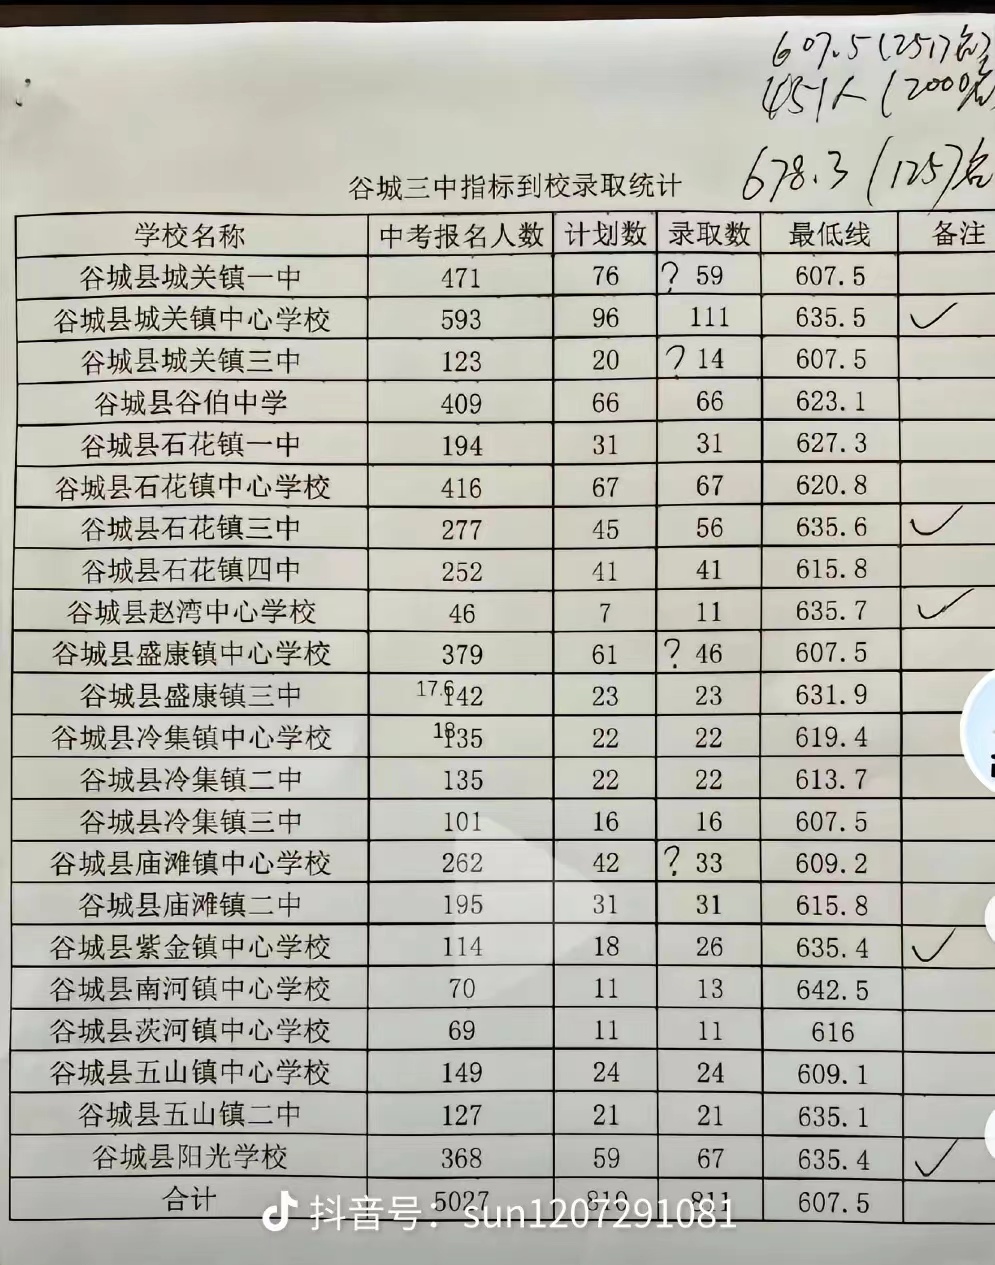 607.5(251名)
451人(2000名
678.3(125)名
谷城三中指标到校录取统计
学校名称 中考报名人数 计划数 录取数 最低线 备注
谷城县城关镇一中 471 76 ? 59 607.5
谷城县城关镇中心学校 593 96 111 635.5 ✓
谷城县城关镇三中 123 20 ? 14 607.5
谷城县谷伯中学 409 66 66 623.1
谷城县石花镇一中 194 31 31 627.3
谷城县石花镇中心学校 416 67 67 620.8
谷城县石花镇三中 277 45 56 635.6 ✓
谷城县石花镇四中 252 41 41 615.8
谷城县赵湾中心学校 46 7 11 635.7 ✓
谷城县盛康镇中心学校 379 61 ? 46 607.5
谷城县盛康镇三中 17.6 142 23 23 631.9
谷城县冷集镇中心学校 18 135 22 22 619.4
谷城县冷集镇二中 135 22 22 613.7
谷城县冷集镇三中 101 16 16 607.5
谷城县庙滩镇中心学校 262 42 ? 33 609.2
谷城县庙滩镇二中 195 31 31 615.8
谷城县紫金镇中心学校 114 18 26 635.4 ✓
谷城县南河镇中心学校 70 11 13 642.5
谷城县茨河镇中心学校 69 11 11 616
谷城县五山镇中心学校 149 24 24 609.1
谷城县五山镇二中 127 21 21 635.1
谷城县阳光学校 368 59 67 635.4 ✓
合计 5027 810 811 607.5
抖音号：sun1207291081